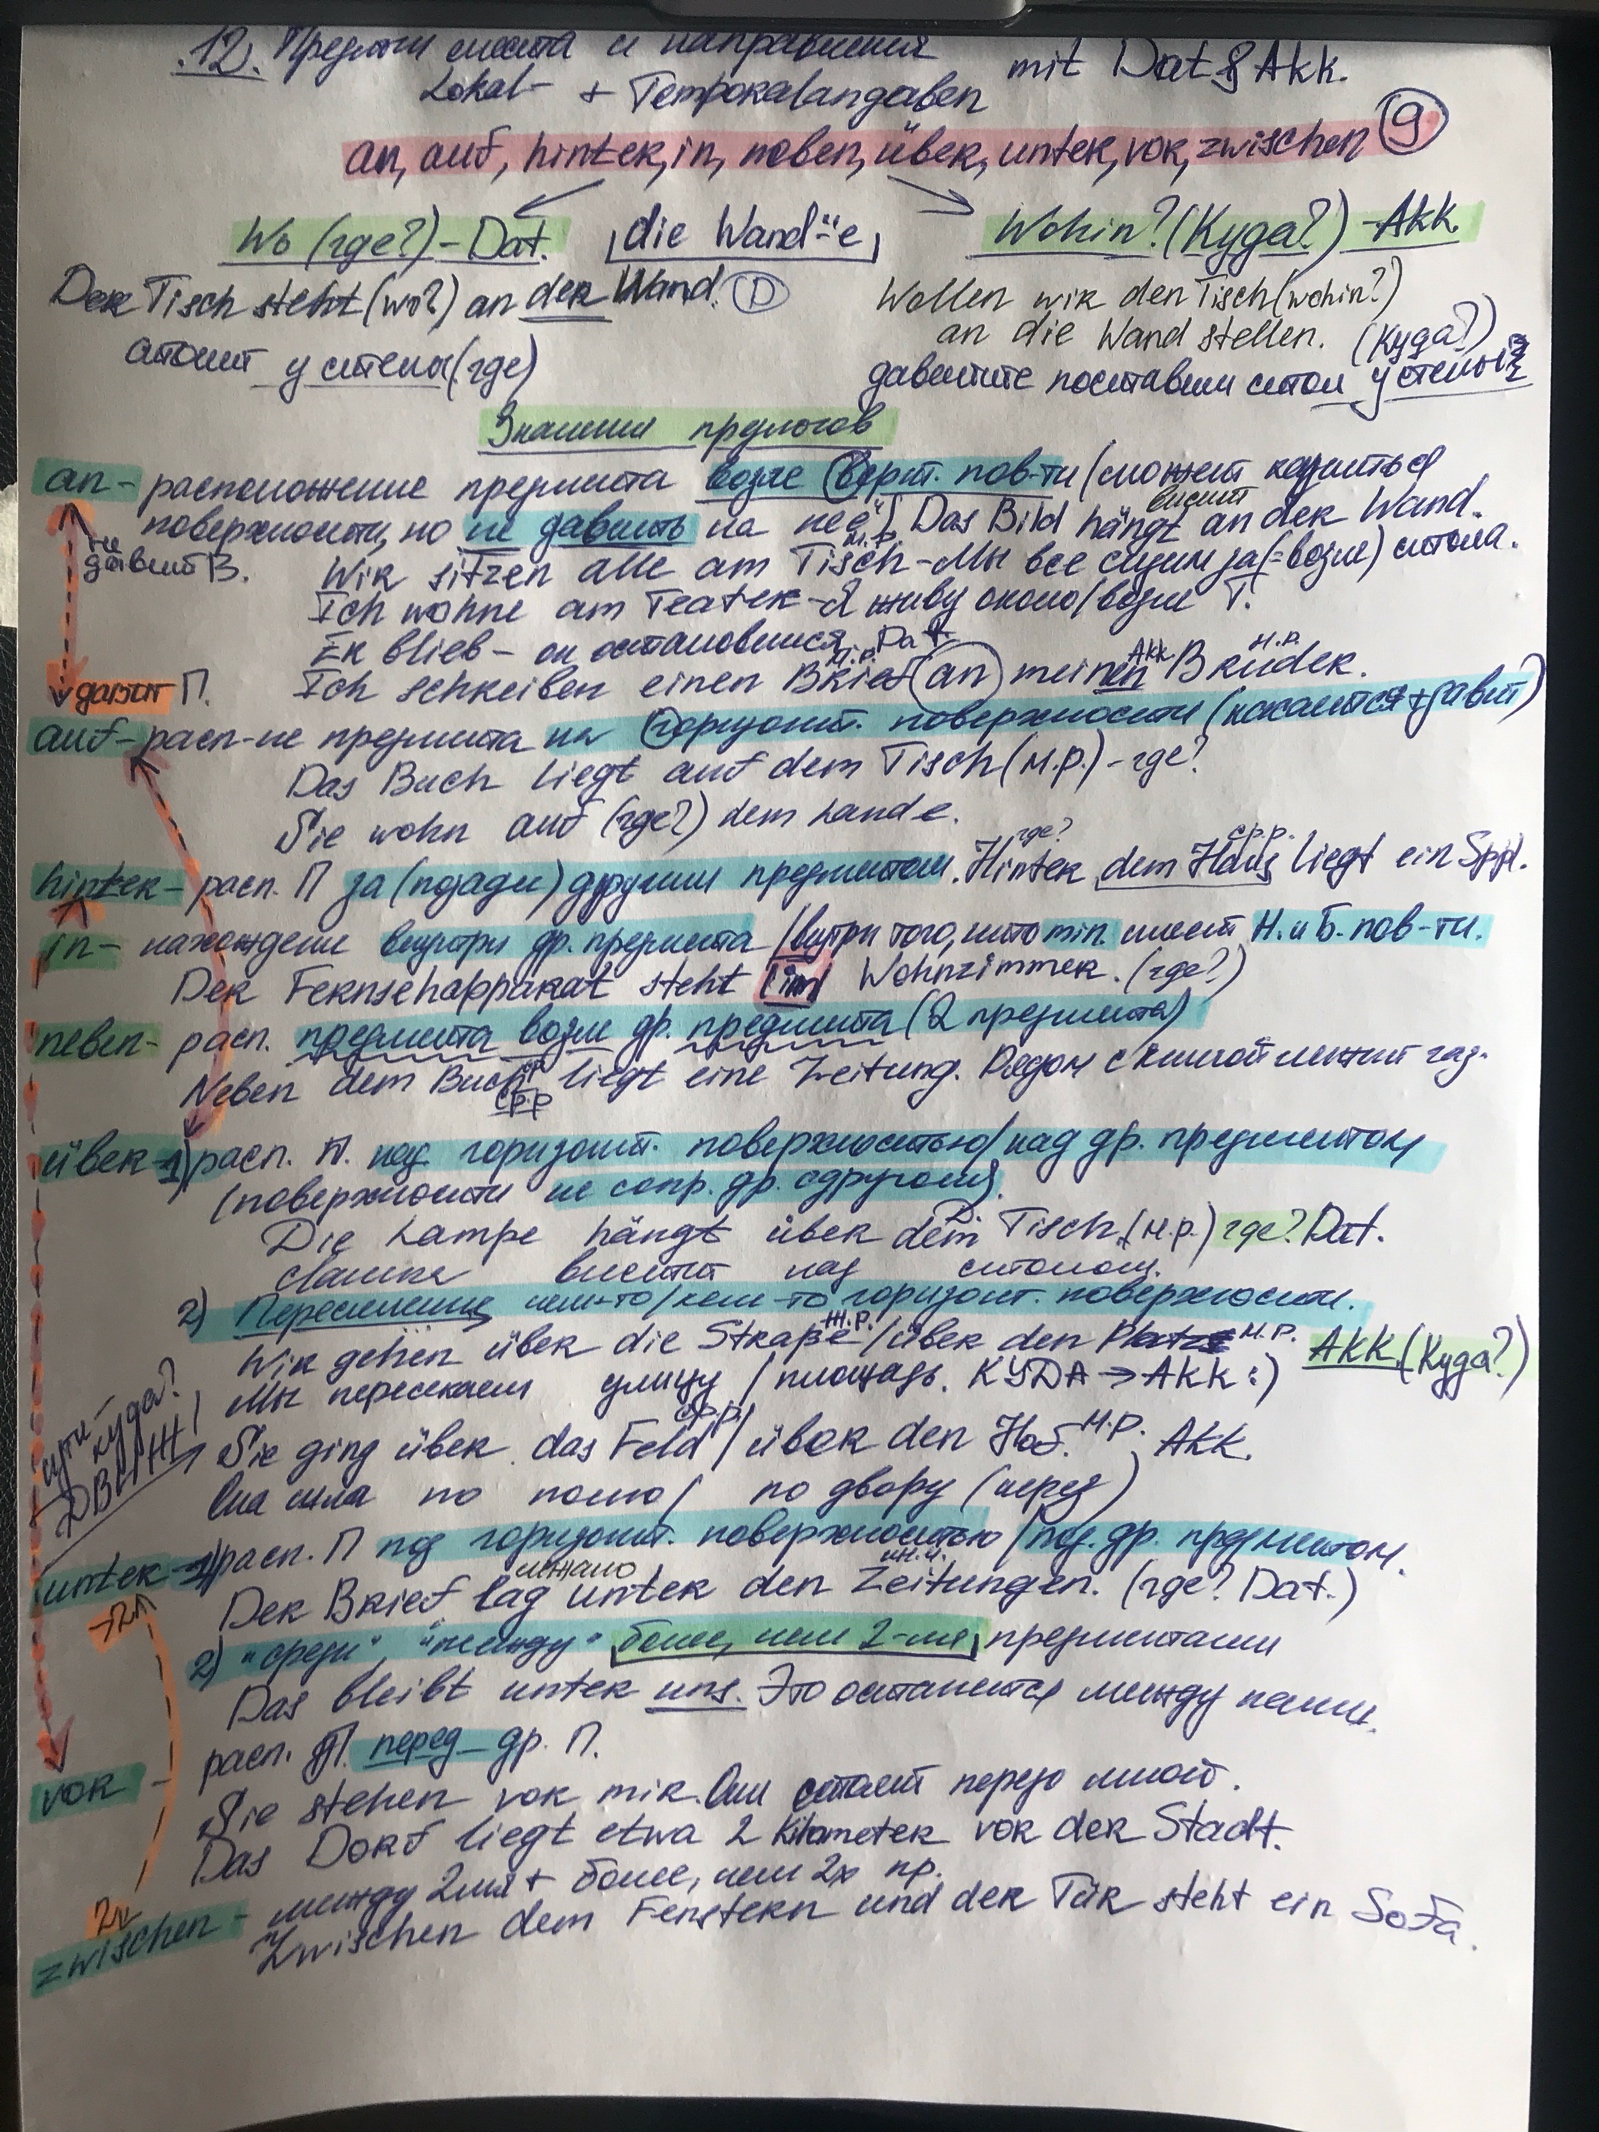 12. Предлоги места и направления mit Dat & Akk.
Lokal- + Temporalangaben
an, auf, hinter, in, neben, über, unter, vor, zwischen 9
Wo (где?) - Dat. die Wand -̈e Wohin? (Куда?) - Akk.
Der Tisch steht (wo?) an der Wand. D
стоит у стены (где)
Wollen wir den Tisch (wohin?)
an die Wand stellen. (Куда?)
давайте поставим стол у стены
Значения предлогов
an - расположение предмета возле верт. пов-ти (может касаться
поверхности, но не давить на неё). Das Bild hängt an der Wand.
висит
не давит В.
м.р.
Wir sitzen alle am Tisch - Мы все сидим за (=возле) стола.
Ich wohne am Teater - Я живу около/возле Т.
Er blieb - он остановился Dat.
м.р. Akk. м.р.
Ich schreiben einen Brief an meinen Bruder.
давит П.
auf - расп-ие предмета на горизонт. поверхности (касается + давит)
Das Buch liegt auf dem Tisch (м.р.) - где?
Sie wohn auf (где?) dem Lande.
где? ср.р.
hinter - расп. П за (позади) другим предметом. Hinter dem Haus liegt ein Sppl.
in - нахождение внутри др. предмета / внутри того, что min. имеет Н. и Б. пов-ти.
Der Fernsehapparat steht im Wohnzimmer. (где?)
neben - расп. предмета возле др. предмета (2 предмета)
Neben dem Buch liegt eine Zeitung. Рядом с книгой лежит газ.
ср.р
über - 1) расп. П. над горизонт. поверхностью / над др. предметом
(поверхности не сопр. др. с другом).
Die Lampe hängt über dem Tisch (м.р.) где? Dat.
Лампа висит над столом.
2) Пересечение чем-то/кем-то горизонт. поверхности.
ж.р. м.р.
Wir gehen über die Straße / über den Platz АКК (Куда?)
Мы пересекаем улицу / площадь. KУDA → AKK :)
идти куда?
ДВИЖ!
ср.р. м.р.
Sie ging über das Feld / über den Hof. Akk.
Она шла по полю / по двору (через)
unter - 1) расп. П под горизонт. поверхностью / под др. предметом.
лежало мн.ч.
Der Brief lag unter den Zeitungen. (где? Dat.)
>2х
2) "среди", "между" более, чем 2-мя предметами
Das bleibt unter uns. Это останется между нами.
vor - расп. П. перед др. П.
Sie stehen vor mir. Они стоят передо мной.
Das Dorf liegt etwa 2 Kilometer vor der Stadt.
2х
zwischen - между 2мя + более, чем 2х пр.
Zwischen dem Fenstern und der Tür steht ein Sofa.